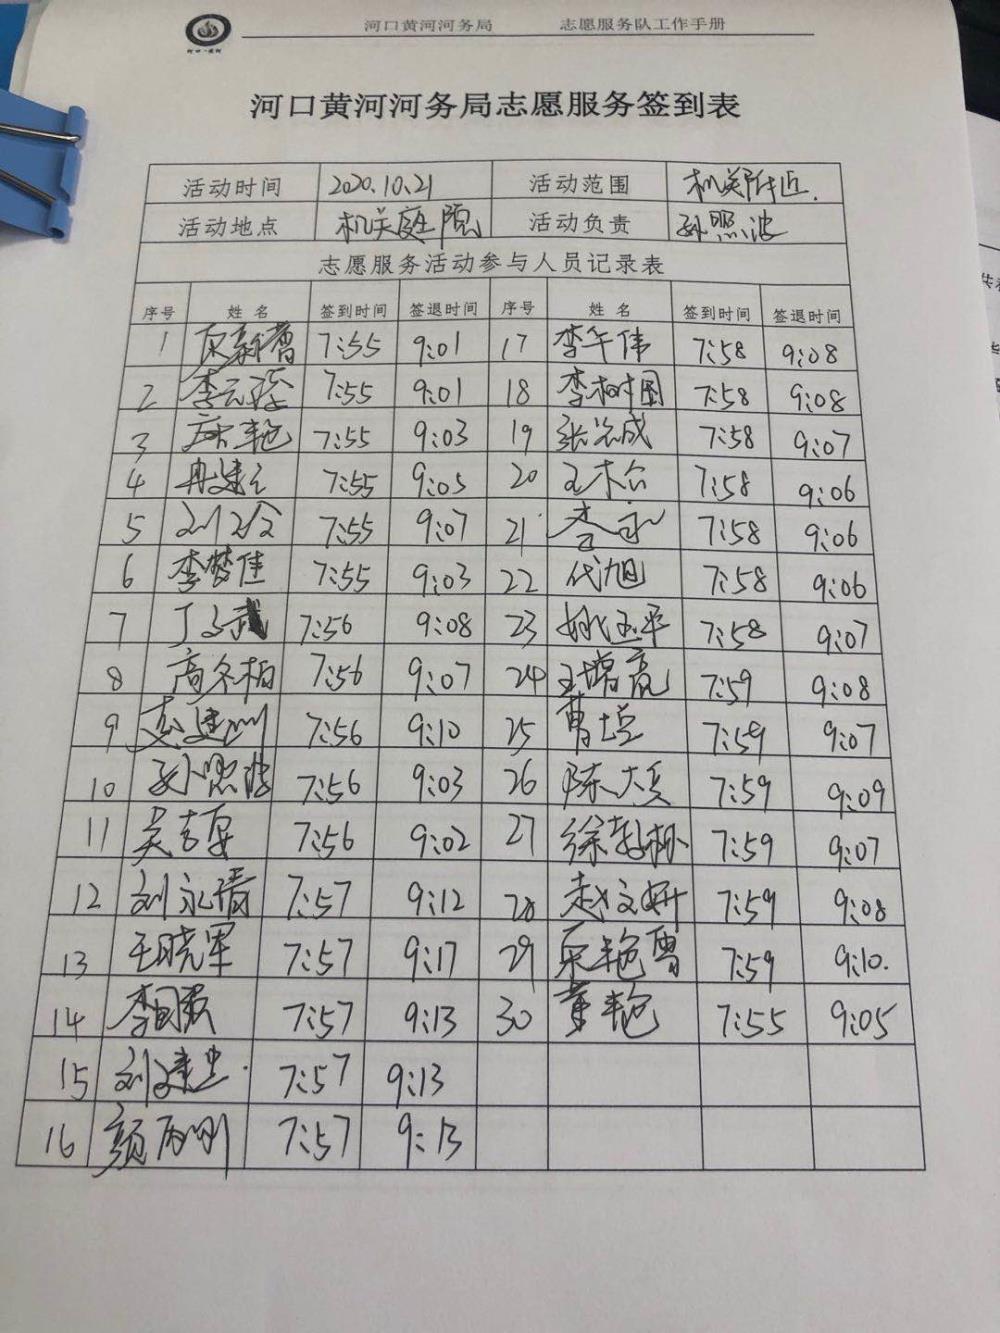 河口黄河河务局 志愿服务队工作手册
河口黄河河务局志愿服务签到表
活动时间 2020.10.21 活动范围 机关附近.
活动地点 机关庭院 活动负责 孙照波
志愿服务活动参与人员记录表
序号 姓名 签到时间 签退时间 序号 姓名 签到时间 签退时间
1 7:55 9:01 17 李午伟 7:58 9:08
2 7:55 9:01 18 李树国 7:58 9:08
3 7:55 9:03 19 7:58 9:07
4 7:55 9:05 20 7:58 9:06
5 7:55 9:07 21 7:58 9:06
6 李梦佳 7:55 9:03 22 代旭 7:58 9:06
7 7:56 9:08 23 姚玉平 7:58 9:07
8 7:56 9:07 24 7:59 9:08
9 7:56 9:10 25 7:59 9:07
10 孙照波 7:56 9:03 26 陈大兵 7:59 9:09
11 7:56 9:02 27 7:59 9:07
12 刘永清 7:57 9:12 28 赵文妍 7:59 9:08
13 王晓军 7:57 9:17 29 7:59 9:10.
14 7:57 9:13 30 董艳 7:55 9:05
15 7:57 9:13
16 7:57 9:13